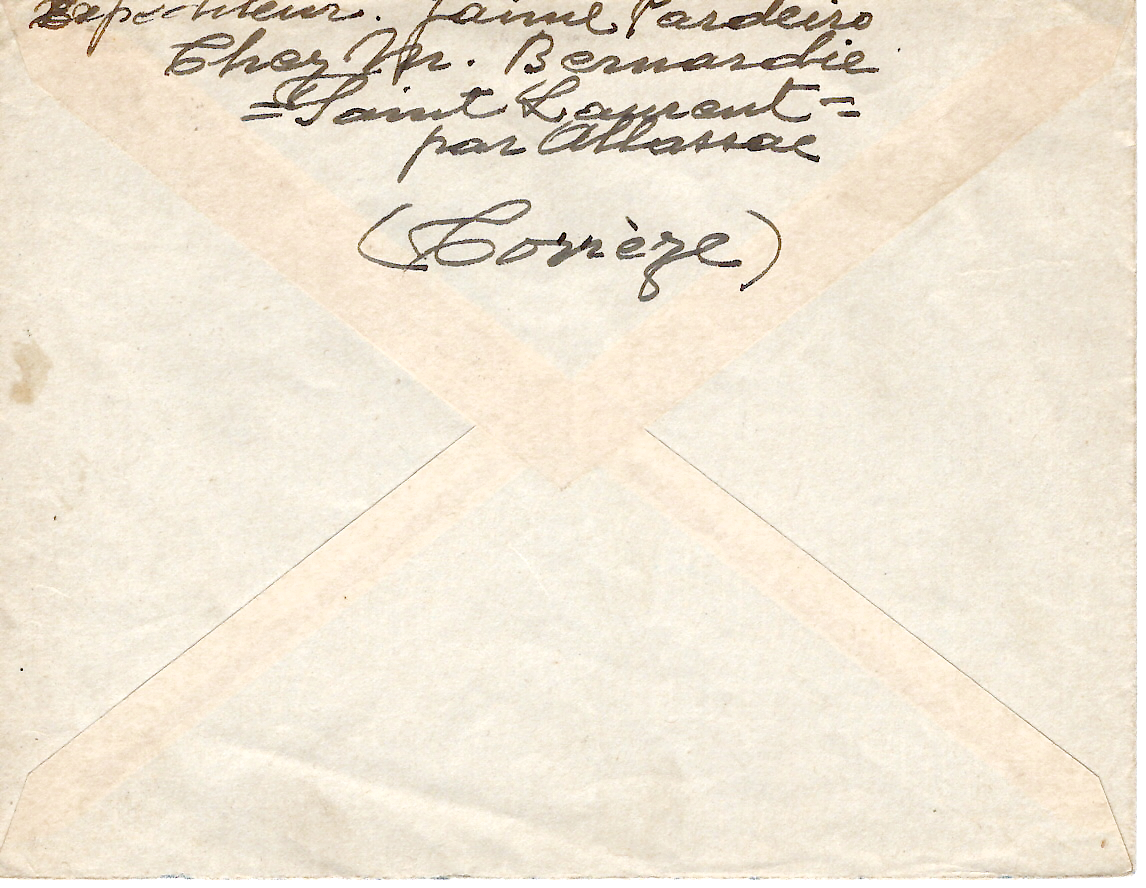 Expéditeur. Jaime Pardeiro
Chez Mr. Bernardie
=Saint Laurent=
par Allassac
(Corrèze)